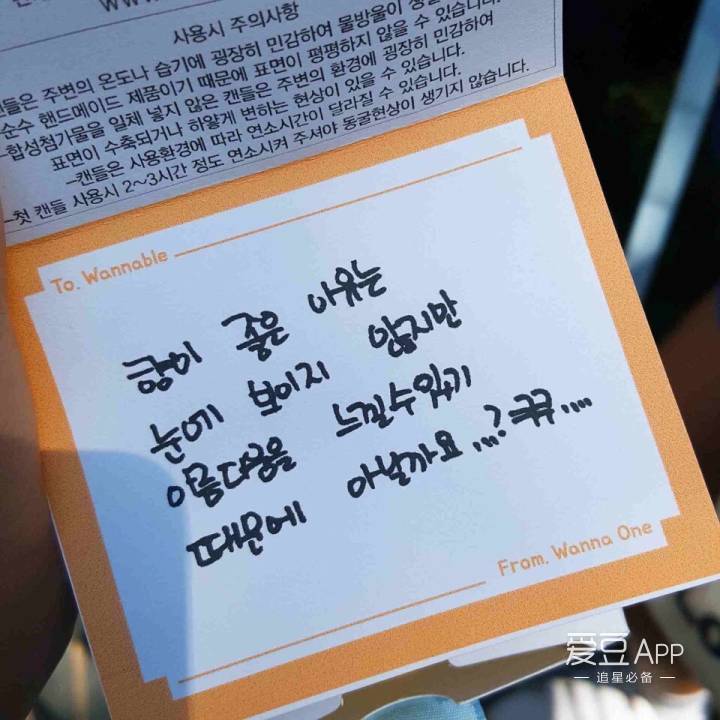 www
사용시 주의사항
캔들은 주변의 온도나 습기에 굉장히 민감하여 물방울이
순수 핸드메이드 제품이기 때문에 표면이 평평하지 않을 수 있습니다.
-합성첨가물을 일체 넣지 않은 캔들은 주변의 환경에 굉장히 민감하여
표면이 수축되거나 하얗게 변하는 현상이 있을 수 있습니다.
-캔들은 사용환경에 따라 연소시간이 달라질 수 있습니다.
-첫 캔들 사용시 2~3시간 정도 연소시켜 주셔야 동굴현상이 생기지 않습니다.
To. Wannable
향이 좋은 이유는
눈에 보이지 않지만
아름다움을 느낄수있기
때문에 아닐까요...? ㅋㅋ....
From. Wanna One
爱豆 APP
追星必备